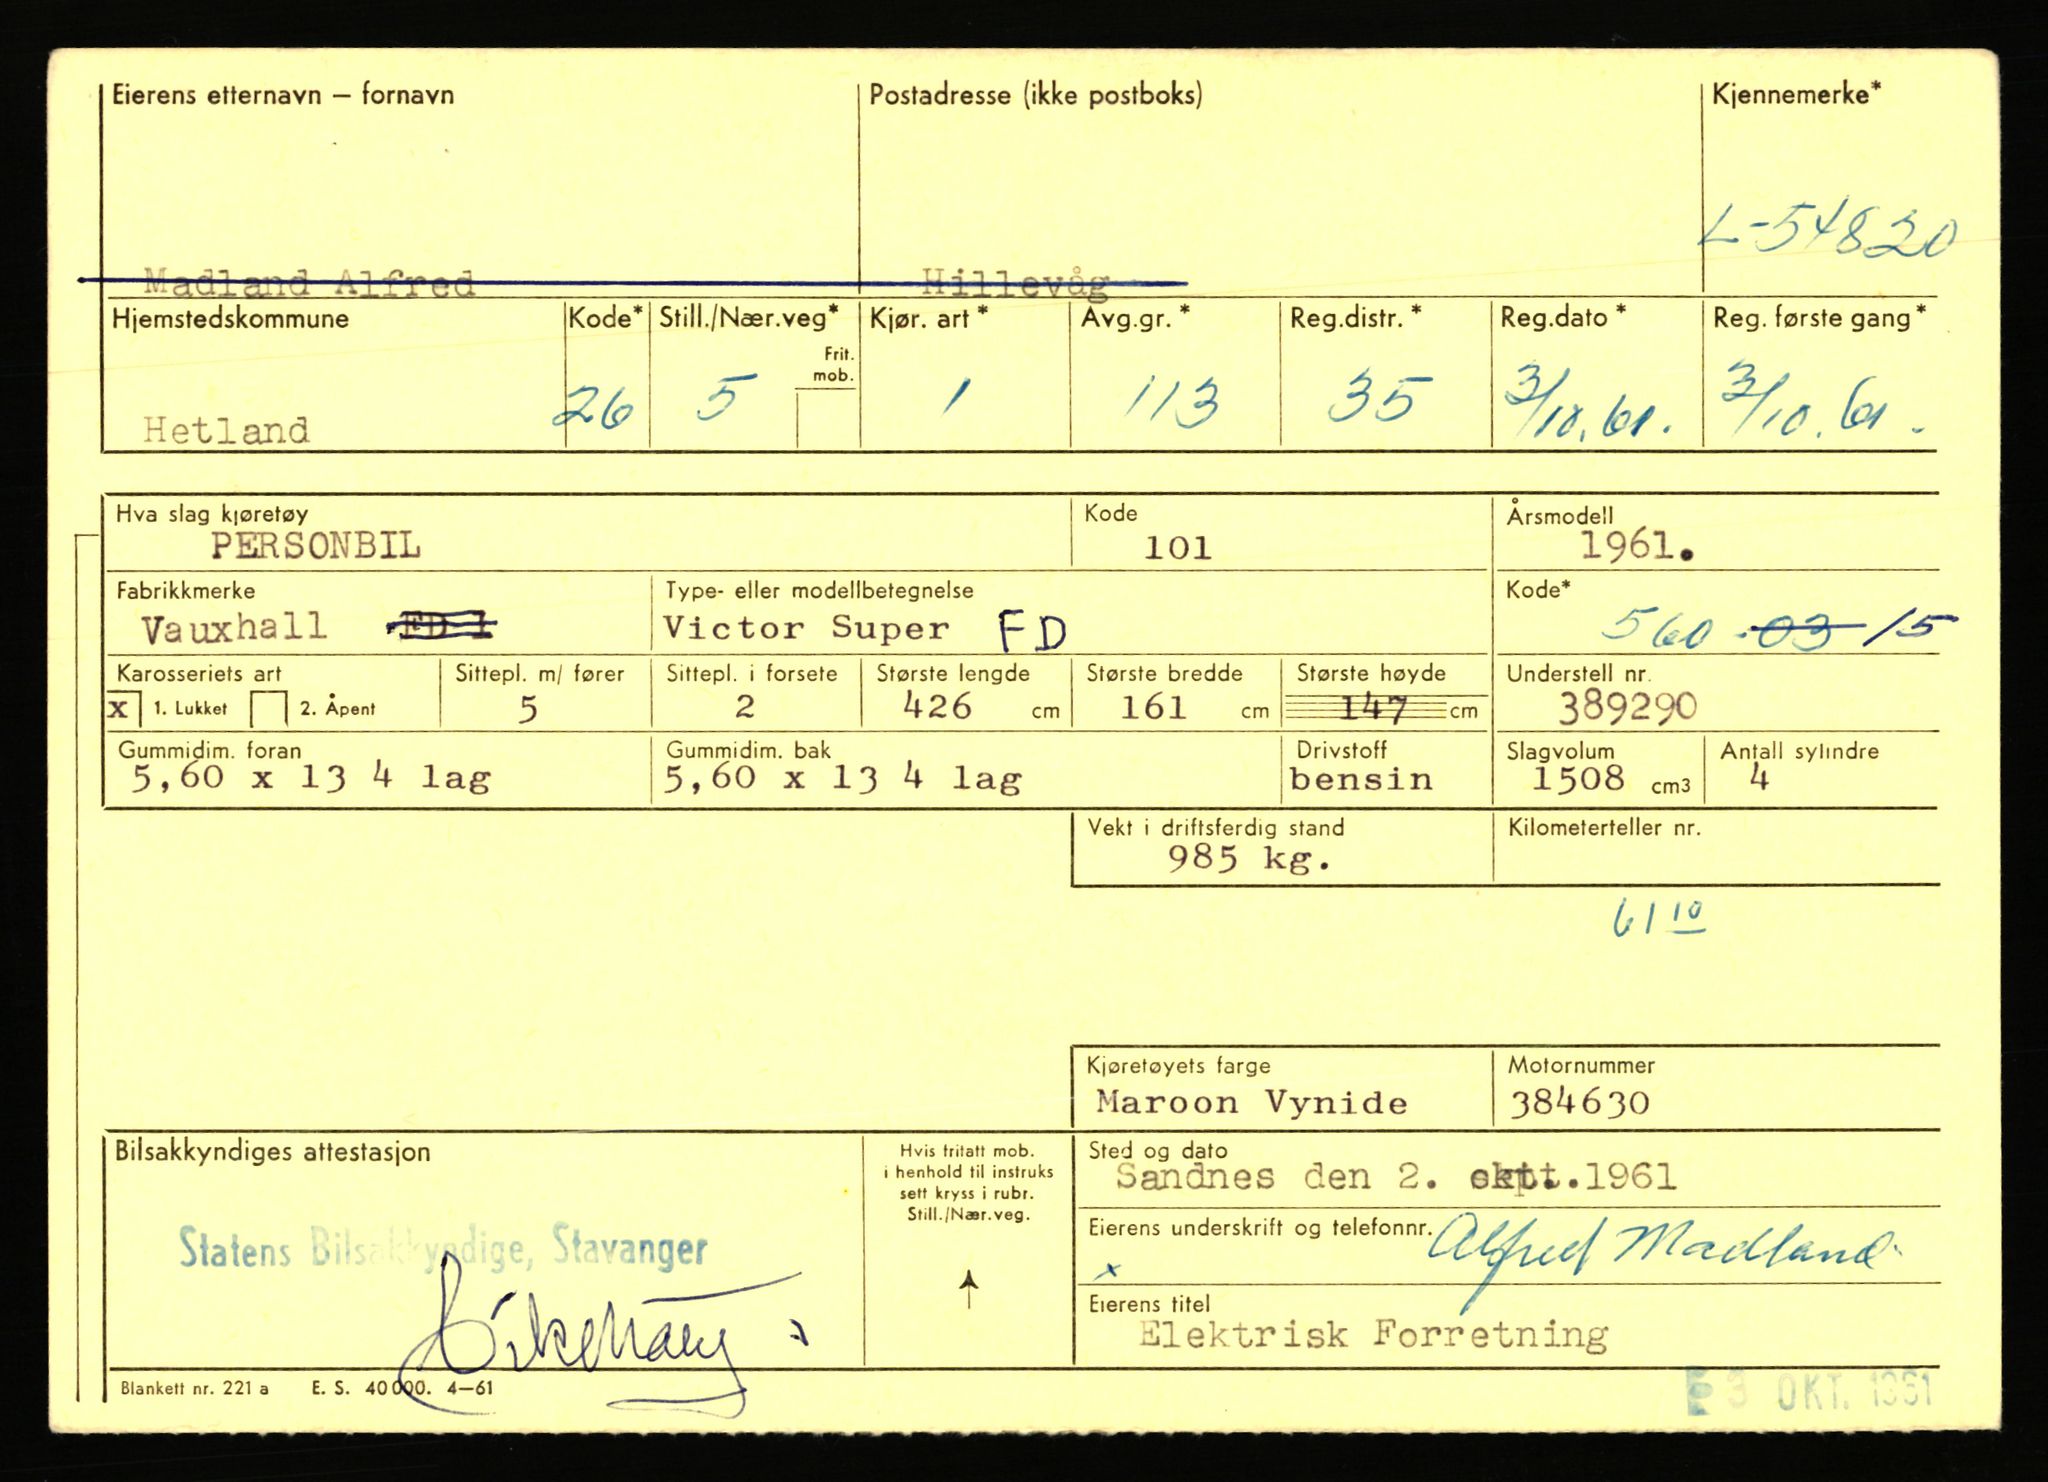 Eierens etternavn – fornavn
Postadresse (ikke postboks)
Kjennemerke*
L-54820
Madland Alfred
Hillevåg
Hjemstedskommune
Kode*
Still./Nær.veg*
Frit. mob.
Kjør. art*
Avg.gr.*
Reg.distr.*
Reg.dato*
Reg. første gang*
Hetland
26
5
1
113
35
3/10.61.
3/10.61.
Hva slag kjøretøy
PERSONBIL
Kode
101
Årsmodell
1961.
Fabrikkmerke
Vauxhall FD 1
Type- eller modellbetegnelse
Victor Super FD
Kode*
560 03 15
Karosseriets art
x 1. Lukket 2. Åpent
Sittepl. m/ fører
5
Sittepl. i forsete
2
Største lengde
426 cm
Største bredde
161 cm
Største høyde
147 cm
Understell nr.
389290
Gummidim. foran
5,60 x 13 4 lag
Gummidim. bak
5,60 x 13 4 lag
Drivstoff
bensin
Slagvolum
1508 cm3
Antall sylindre
4
Vekt i driftsferdig stand
985 kg.
Kilometerteller nr.
61 10
Kjøretøyets farge
Maroon Vynide
Motornummer
384630
Bilsakkyndiges attestasjon
Statens Bilsakkyndige, Stavanger
Hvis fritatt mob.
i henhold til instruks
sett kryss i rubr.
Still./Nær.veg.
Sted og dato
Sandnes den 2. okt. 1961
Eierens underskrift og telefonnr.
x Alfred Madland
Eierens titel
Elektrisk Forretning
Blankett nr. 221 a E. S. 40 000. 4–61
3 OKT. 1961